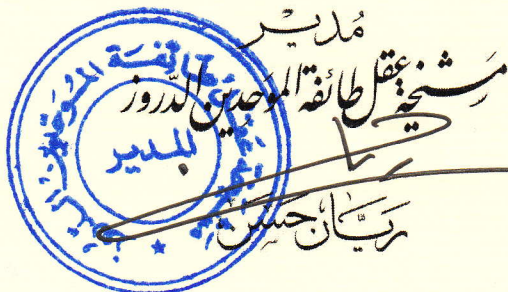 مُدير
مشيخة عقل طائفة الموحدين الدّروز
ريّان حسن
المدير